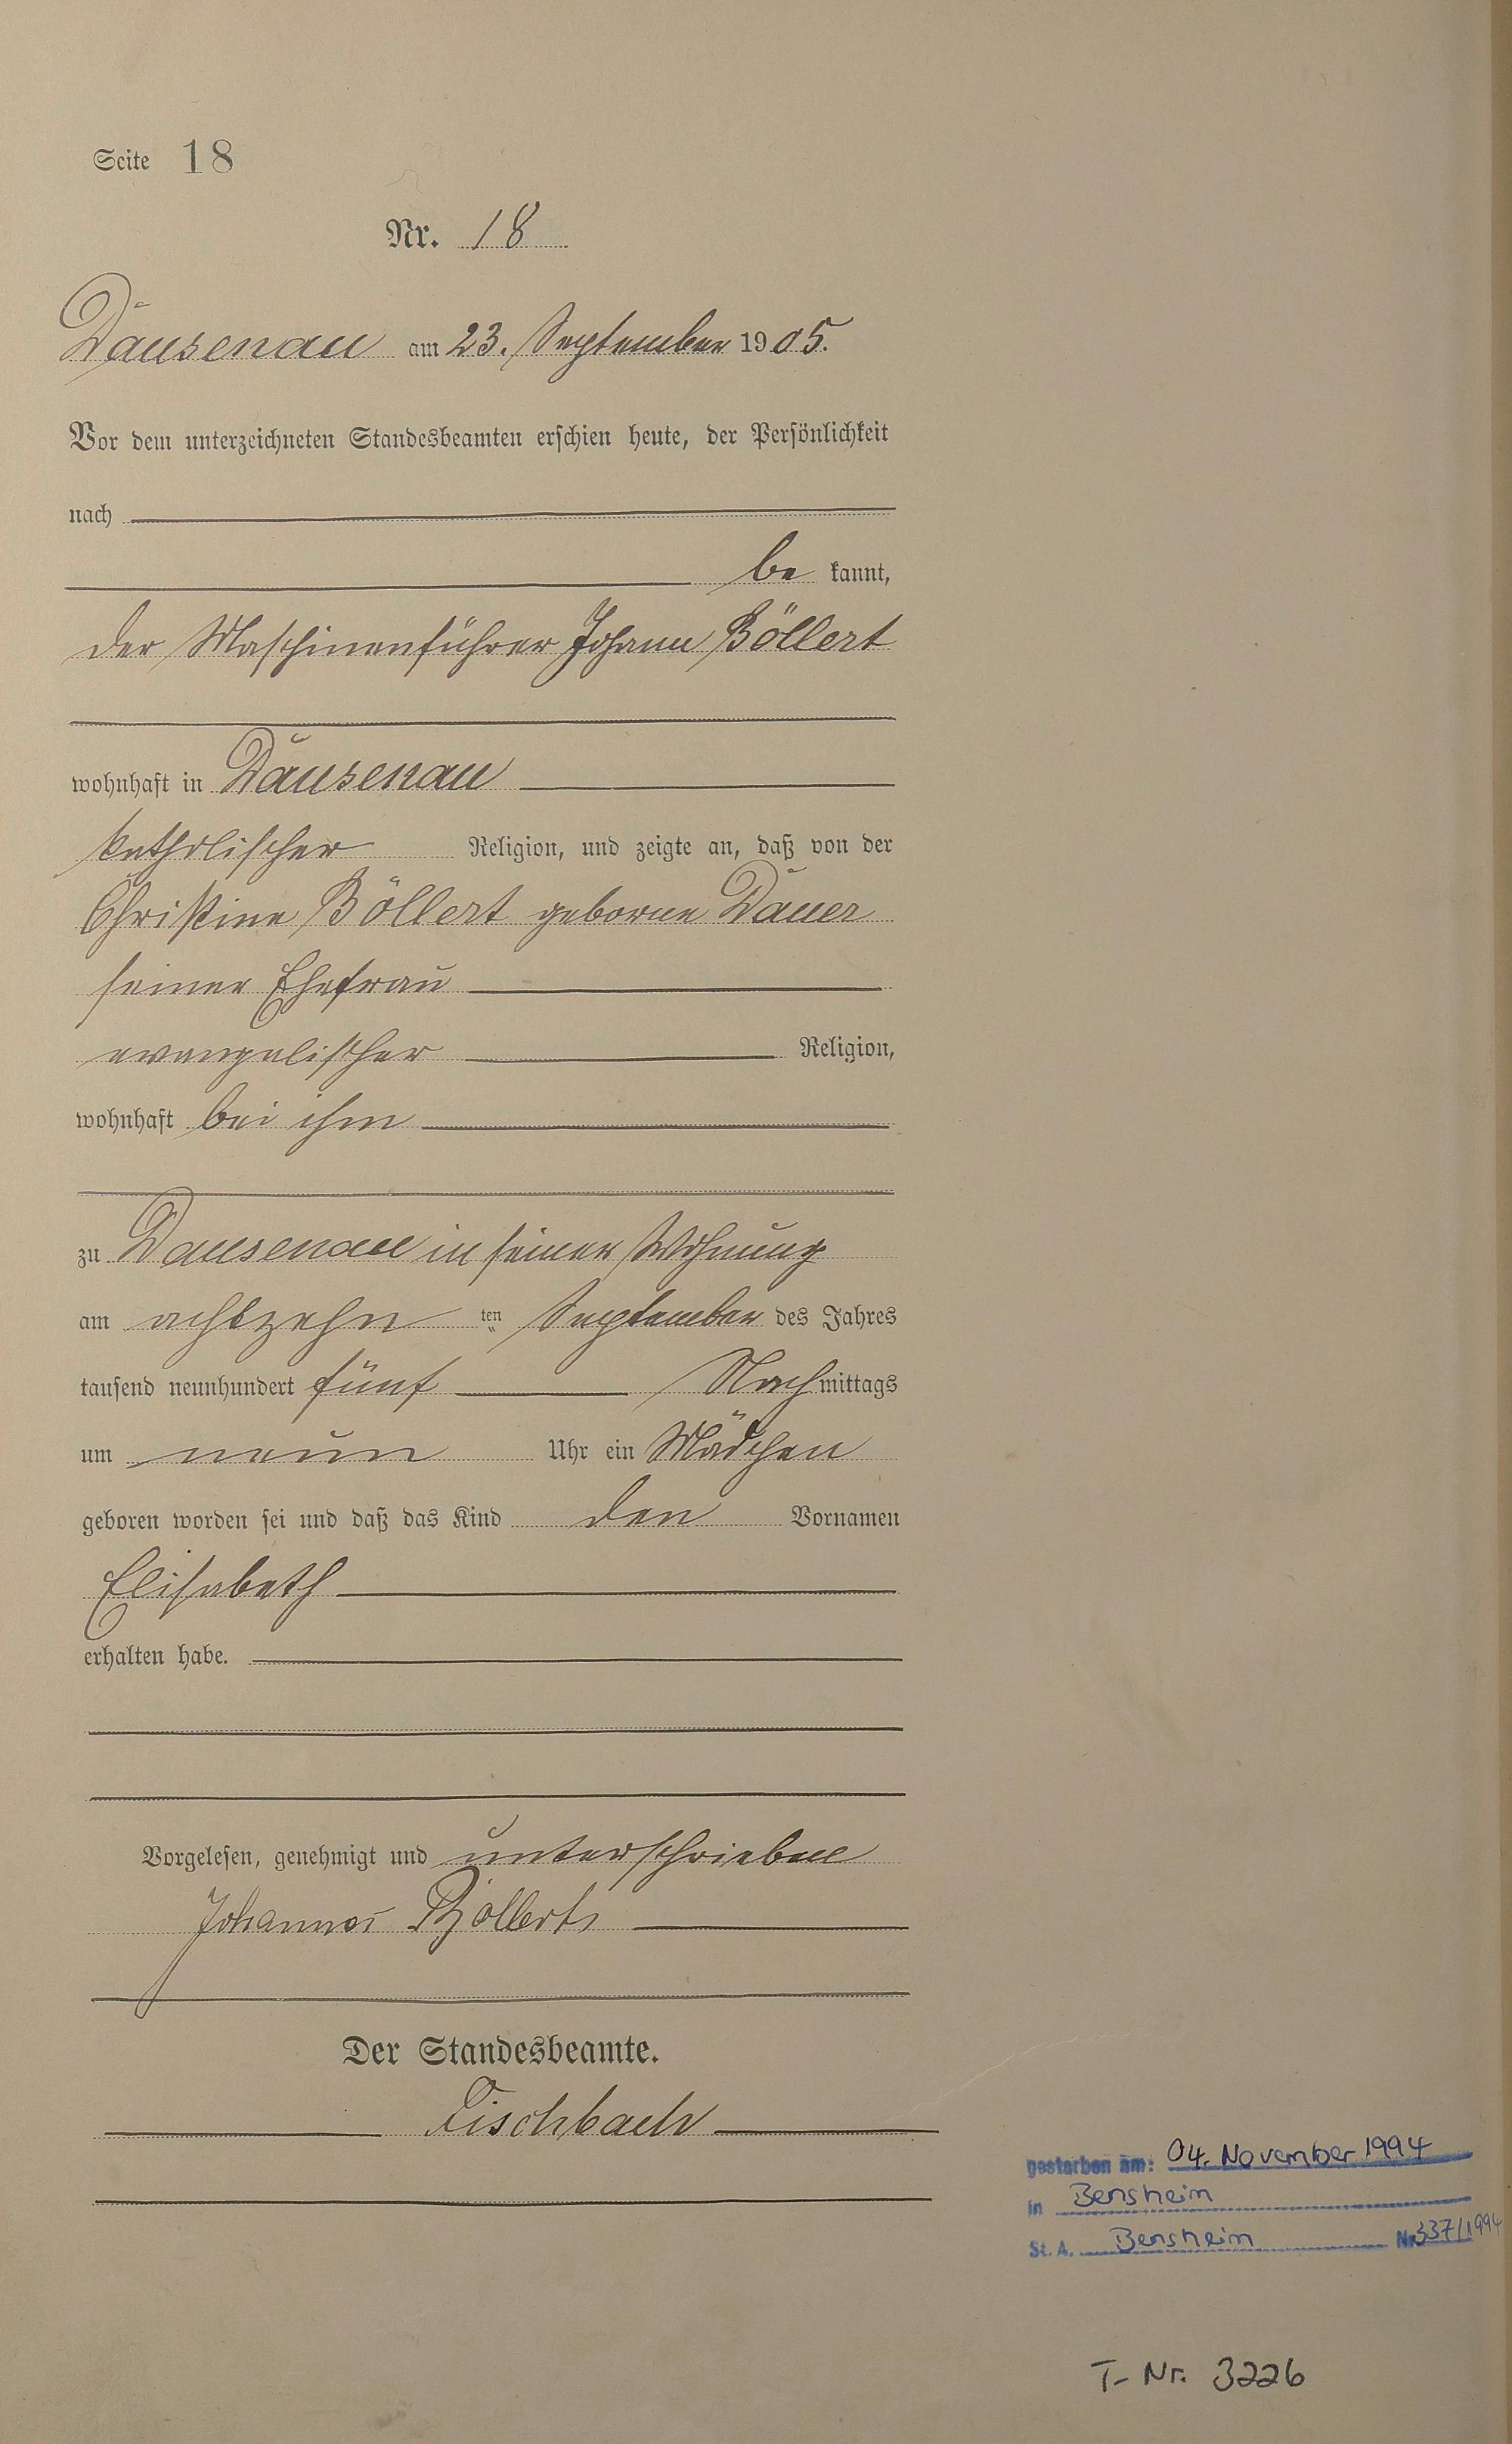 Seite 18
Nr. 18
Dausenau am 23. September 1905.
Vor dem unterzeichneten Standesbeamten erschien heute, der Persönlichkeit
nach
be kannt,
der Maschinenführer Johann Böllert
wohnhaft in Dausenau
katholischer Religion, und zeigte an, daß von der
Christine Böllert geborne Dauer
seiner Ehefrau
evangelischer Religion,
wohnhaft bei ihm
zu Dausenau in seiner Wohnung
am achtzehn ten September des Jahres
tausend neunhundert fünf Nachmittags
um neun Uhr ein Mädchen
geboren worden sei und daß das Kind den Vornamen
Elisabeth
erhalten habe.
Vorgelesen, genehmigt und unterschrieben
Johannes Böllert
Der Standesbeamte.
Fischbach
gestorben am: 04. November 1994
in Bensheim
St. A. Bensheim Nr. 337/1994
T- Nr. 3226